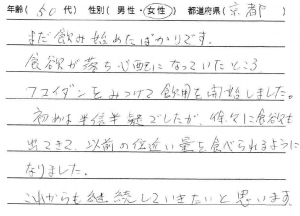 年齢( 50 代) 性別( 男性・女性 ) 都道府県( 京都 )
まだ飲み始めたばかりです。
食欲が落ち心配になっていたところ
フコイダンをみつけて飲用を開始しました。
初めは半信半疑でしたが、徐々に食欲も
出てきて、以前の倍近い量を食べられるように
なりました。
これからも継続していきたいと思います